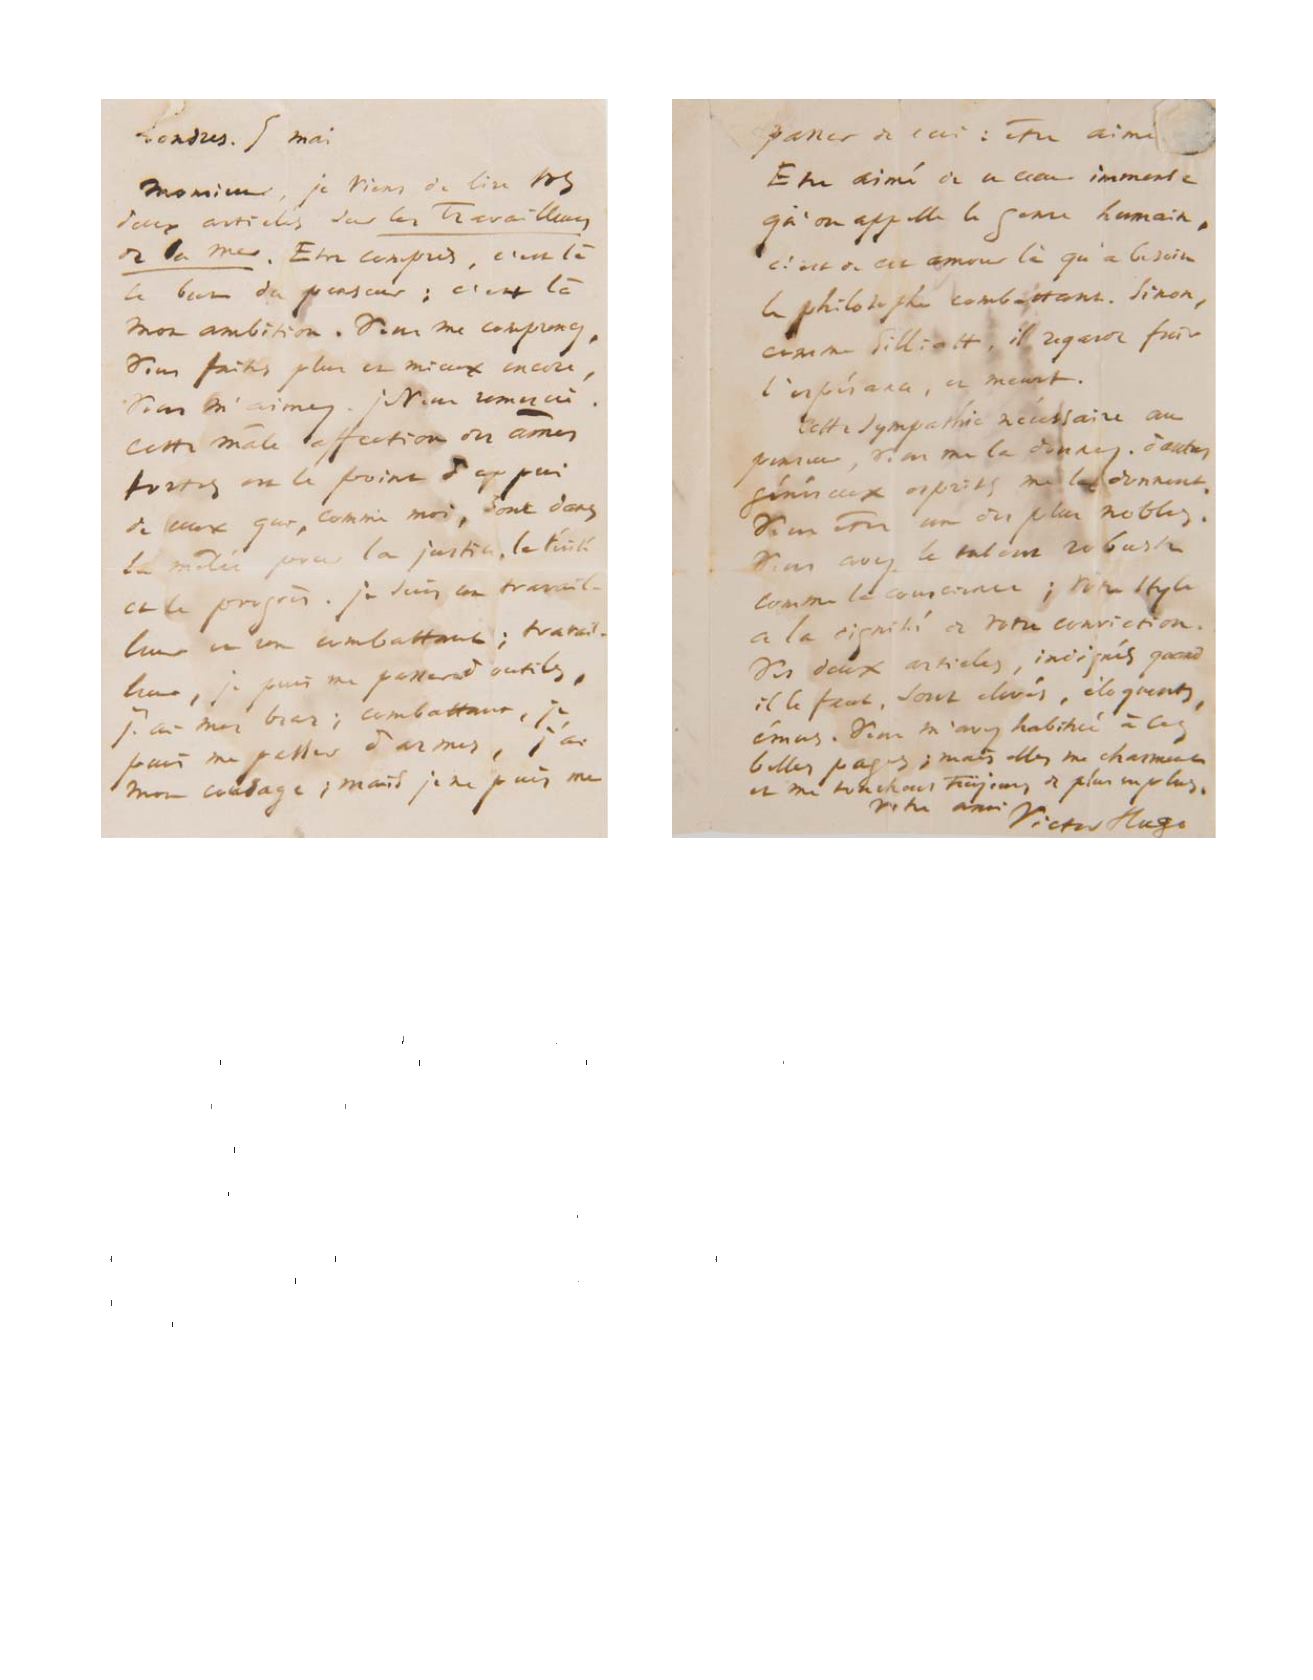 Londres. 5 mai
Monsieur, je viens de lire vos
deux articles sur les Travailleurs
de la mer. Etre compris, c'est là
le but du penseur ; c'est là
mon ambition. Vous me comprenez,
Vous faites plus et mieux encore,
Vous m'aimez. je vous remercie.
cette mâle affection des âmes
fortes est le point d'appui
de ceux qui, comme moi, sont dans
la mêlée pour la justice, la vérité
et le progrès. je suis un travail-
leur et un combattant ; travail-
leur, je puis me passer d'outils,
j'ai mes bras ; combattant, je
puis me passer d'armes, j'ai
mon courage ; mais je ne puis me
passer de ceci : être aimé
Etre aimé de ce cœur immense
qu'on appelle le genre humain,
c'est de cet amour là qu'a besoin
le philosophe combattant. Sinon,
comme Gilliatt, il regarde fuir
l'espérance, et meurt.
Cette sympathie nécessaire au
penseur, vous me la donnez. d'autres
généreux esprits me la donnent.
Vous êtes un des plus nobles.
Vous avez le talent robuste
comme la conscience ; votre style
a la dignité de votre conviction.
Vos deux articles, indignés quand
il le faut, sont élevés, éloquents,
émus. Vous m'avez habitué à ces
belles pages ; mais elles me charment
et me touchent toujours de plus en plus.
Votre ami Victor Hugo